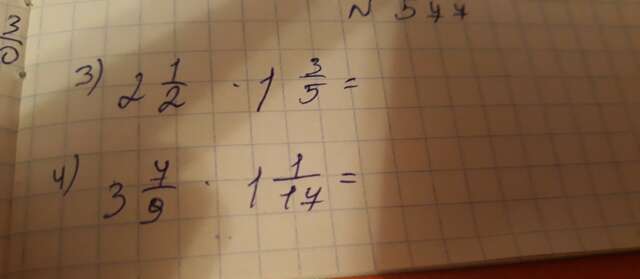 № 577
3) 2 1/2 · 1 3/5 =
4) 3 7/9 · 1 1/17 =